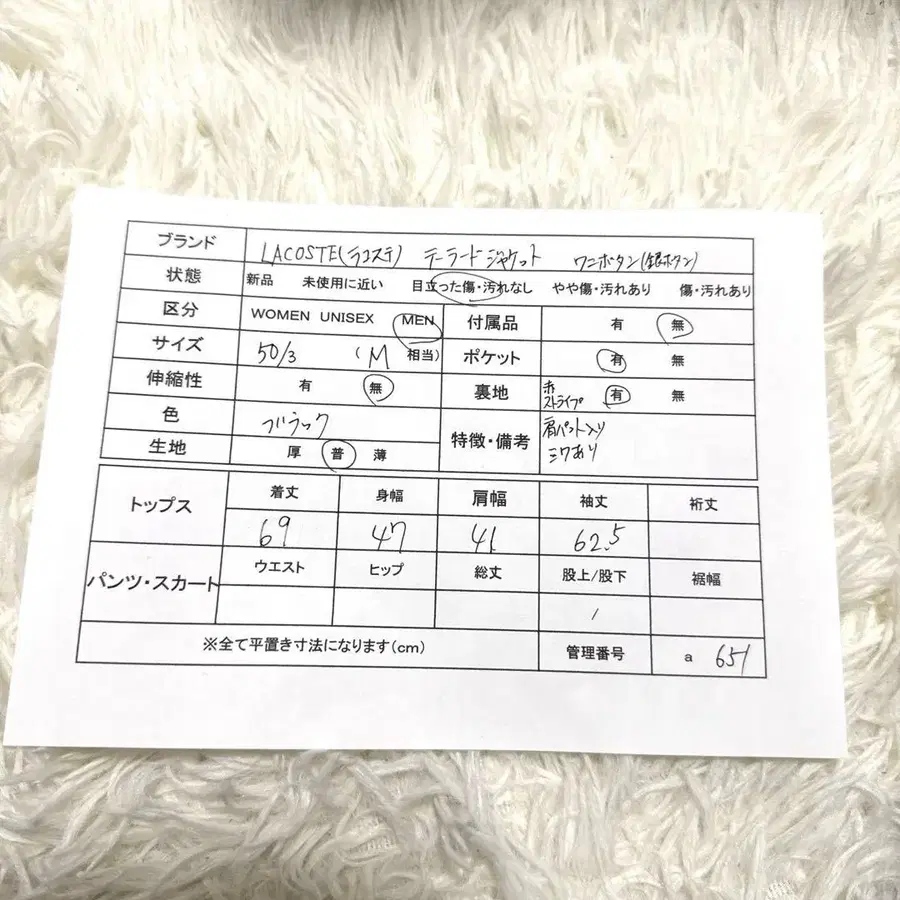 ブランド LACOSTE(ラコステ) テーラードジャケット ワニボタン(銀ボタン)
状態 新品 未使用に近い 目立った傷・汚れなし やや傷・汚れあり 傷・汚れあり
区分 WOMEN UNISEX MEN 付属品 有 無
サイズ 50/3 (M 相当) ポケット 有 無
伸縮性 有 無 裏地 赤ストライプ 有 無
色 ブラック 特徴・備考 肩パット入り
シワあり
生地 厚 普 薄
トップス 着丈 身幅 肩幅 袖丈 裄丈
69 47 41 62.5
パンツ・スカート ウエスト ヒップ 総丈 股上/股下 裾幅
/
※全て平置き寸法になります(cm) 管理番号 a 651